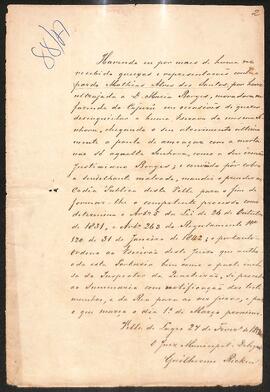 2
88
Havendo eu por mais de huma vez
recebido queixas e representacoens contra o
pardo Mathias Alves dos Santos, por haver
ultrajado a D. Maria Borges, moradora na
fazenda do Cajurú em occasioens de querer
desinquietar a huma escrava da mesma se-
nhora, chegando o seu atrevimento ultima-
mente a ponto de ameaçar com a morte
não só aquella Senhora, como a seu
Borges; e convindo pôr cobro
a similhante malvado, mando o prender na
Cadia Publica desta Villa para o fim de
formar-lhe o competente processo como
determina o Artº 5 da Lei de 26 de Outubro
de 1831, e Artº 263 do Regulamento Nº
120 de 31 de Janeiro de 1842; e portanto
ordeno ao Escrivão deste Juizo que
esta Portaria bem como a parte inclu-
sa do Inspector de Quarteirão, se proceda
ao Summario com notificação das teste-
munhas, e do Reo para as ver jurar, e para
o que marco o dia 1º de Março proximo.
Villa de Lages 27 de Fevrº de
O Juiz Municipal
Guilherme Ricken